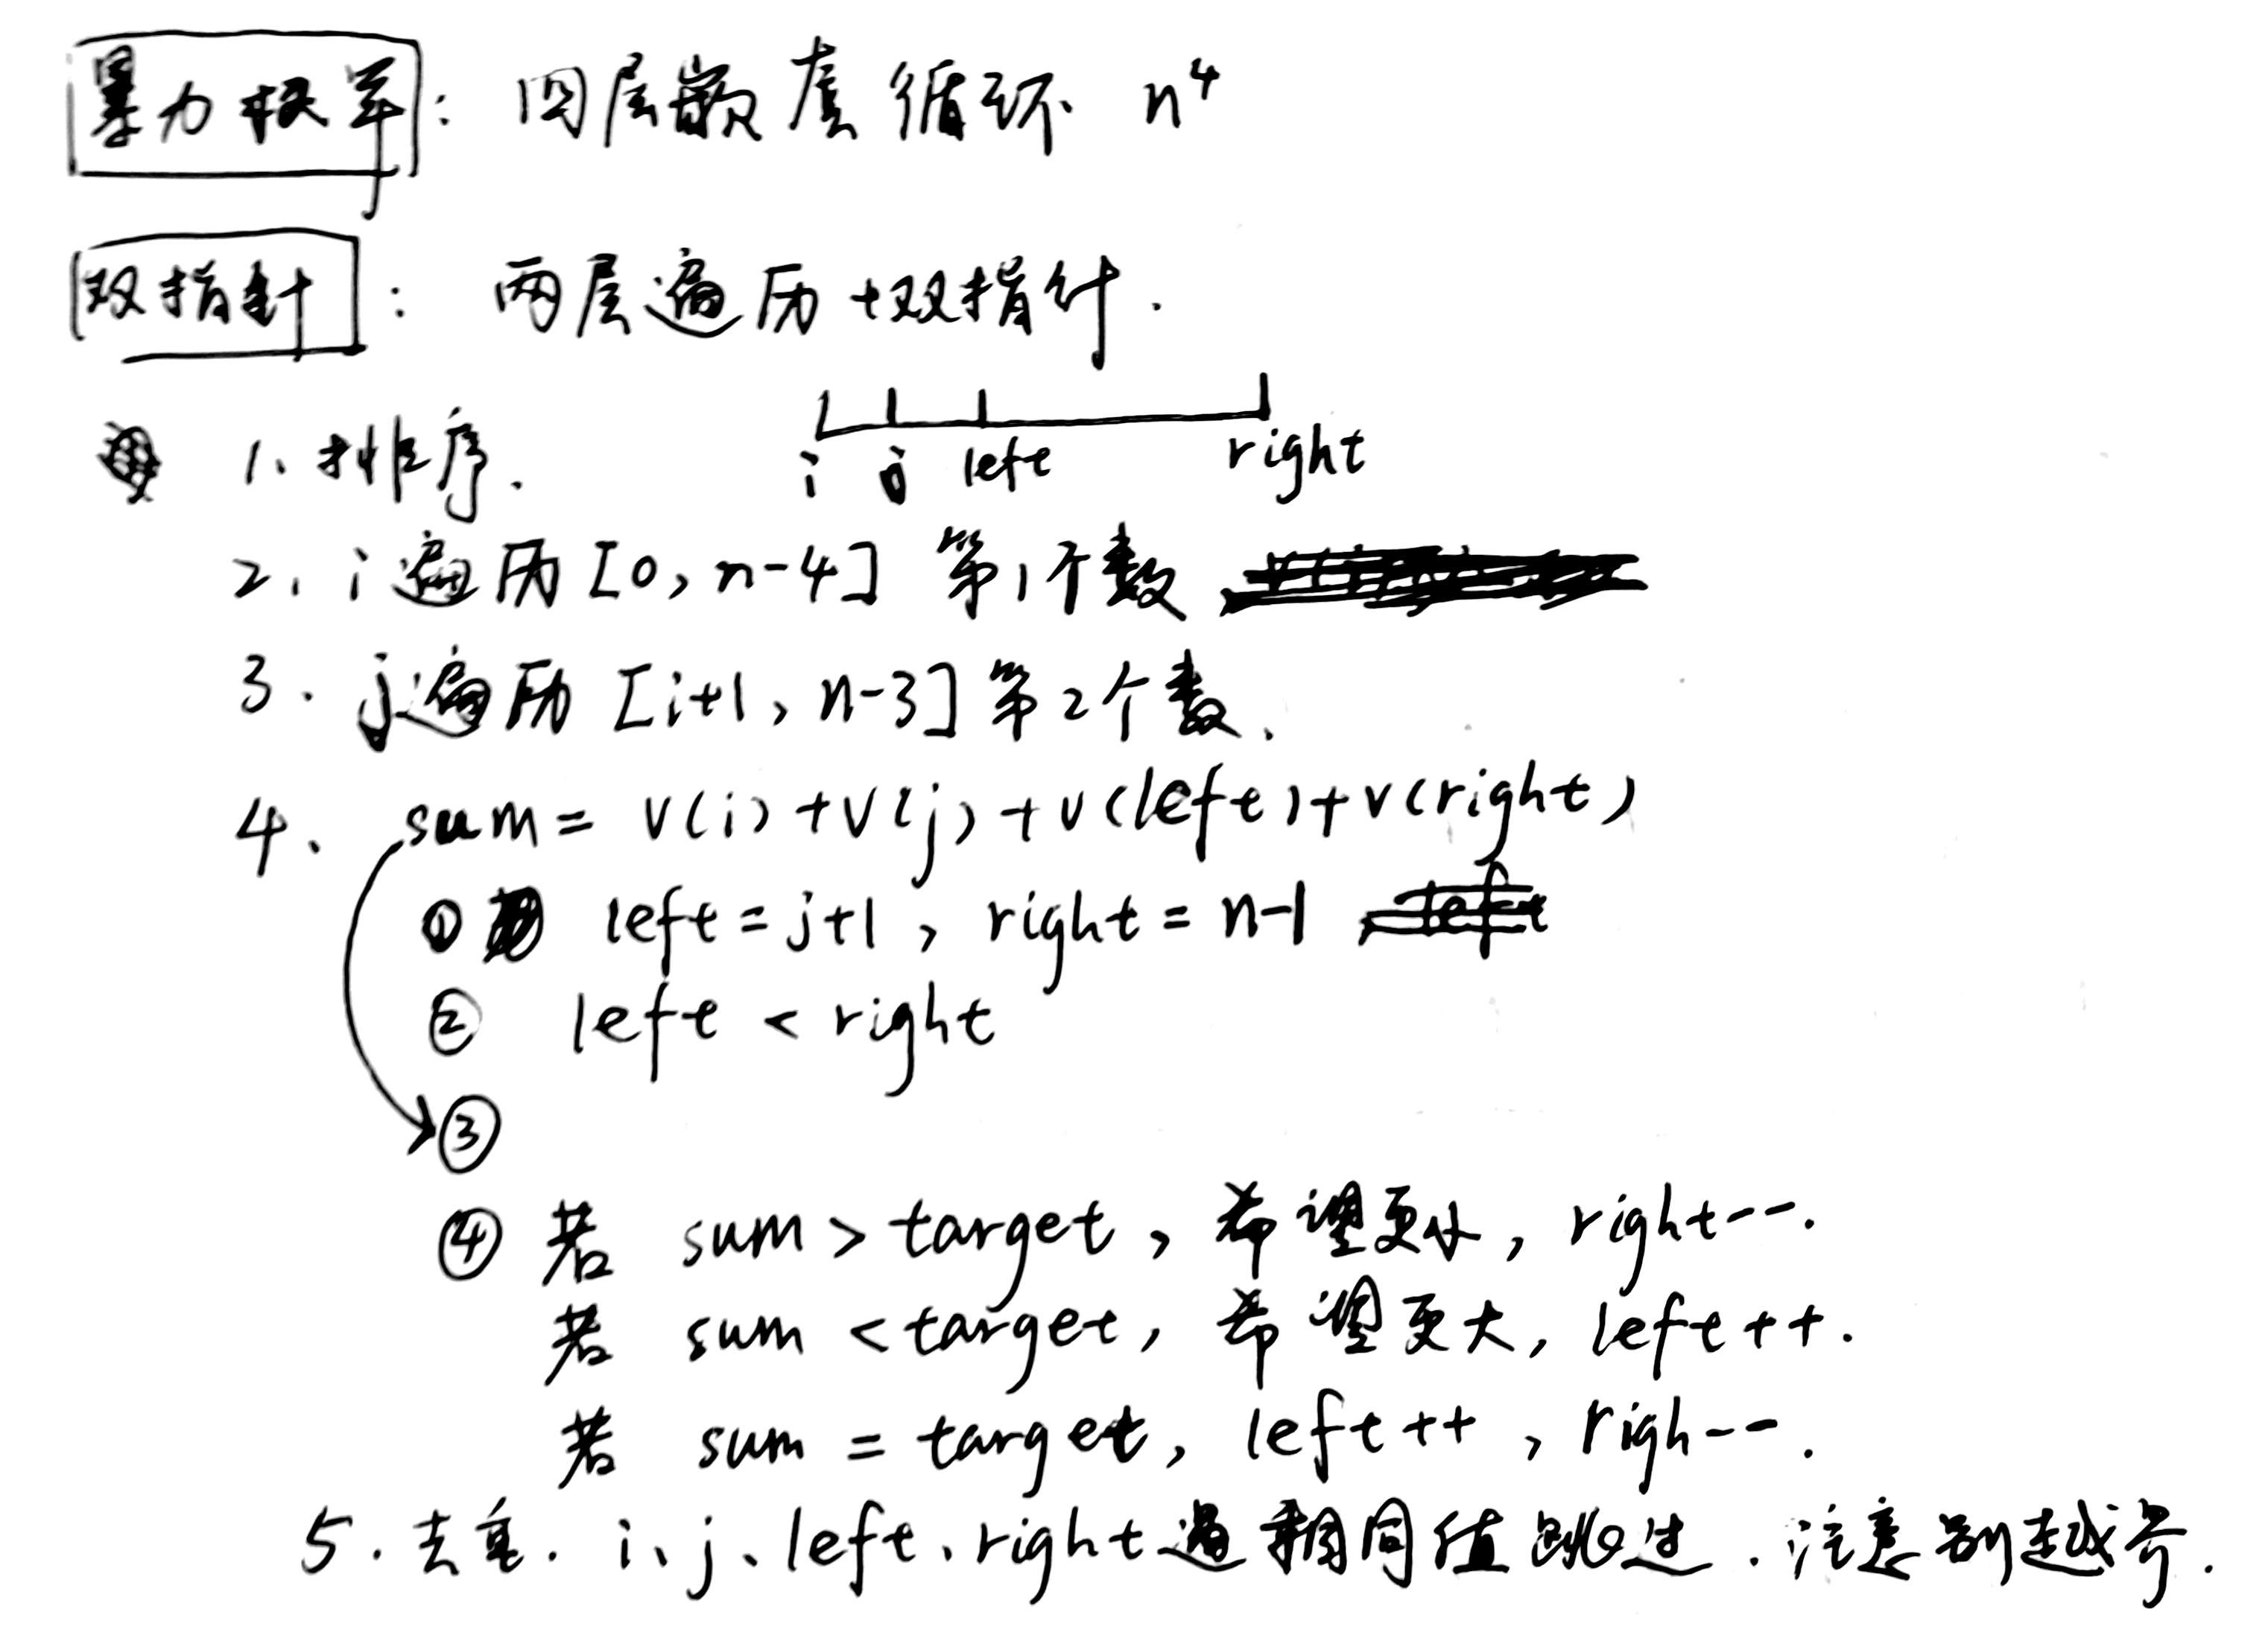 暴力枚举：四层嵌套循环 n⁴
双指针：两层遍历+双指针.
1、排序.
i j left right
2、i遍历[0, n-4] 第1个数
3. j遍历[i+1, n-3]第2个数、
4、sum = v(i)+v(j)+v(left)+v(right)
① left = j+1, right = n-1
② left < right
③
④ 若 sum > target, 希望更小, right--.
若 sum < target, 希望更大, left++.
若 sum = target, left++, righ--.
5. 去重. i、j、left、right遇相同值跳过. 注意别越界.